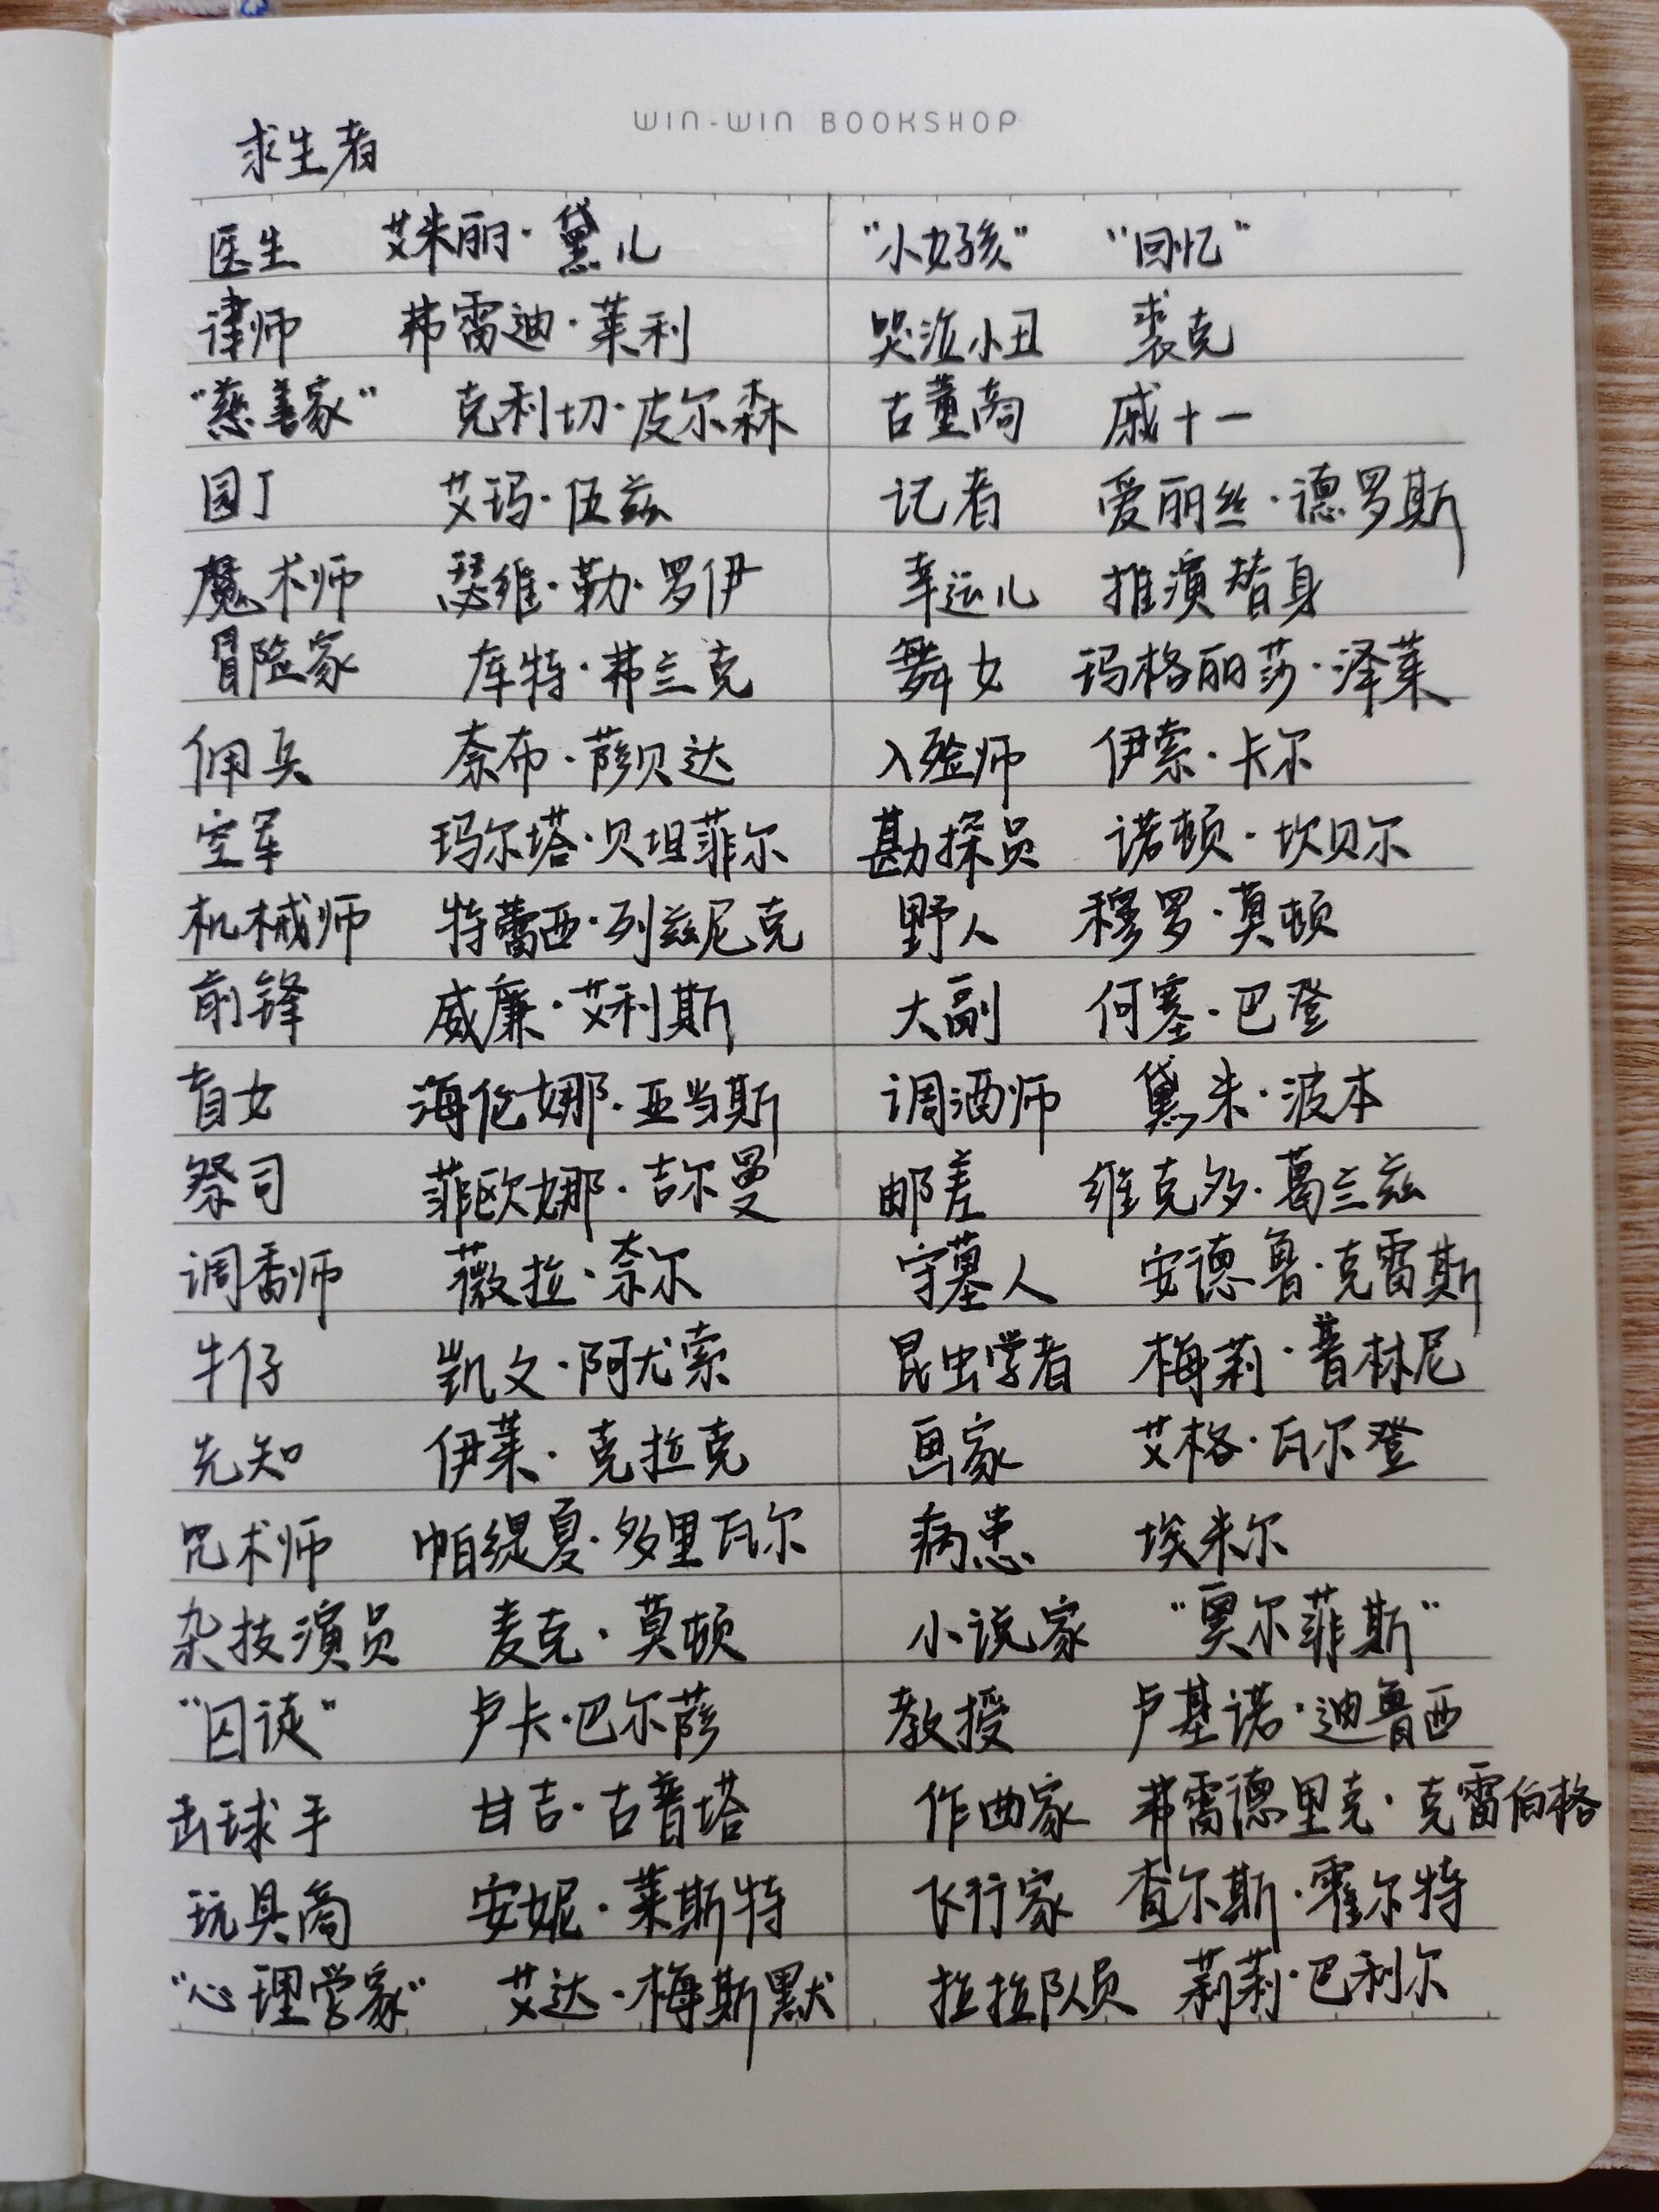 WIN-WIN BOOKSHOP
求生者
医生 艾米丽·黛儿
律师 弗雷迪·莱利
"慈善家" 克利切·皮尔森
园丁 艾玛·伍兹
魔术师 瑟维·勒·罗伊
冒险家 库特·弗兰克
佣兵 奈布·萨贝达
空军 玛尔塔·贝坦菲尔
机械师 特蕾西·列兹尼克
前锋 威廉·艾利斯
盲女 海伦娜·亚当斯
祭司 菲欧娜·吉尔曼
调香师 薇拉·奈尔
牛仔 凯文·阿尤索
先知 伊莱·克拉克
咒术师 帕缇夏·多里瓦尔
杂技演员 麦克·莫顿
"囚徒" 卢卡·巴尔萨
击球手 甘吉·古普塔
玩具商 安妮·莱斯特
"心理学家" 艾达·梅斯默
"小女孩" "回忆"
哭泣小丑 裘克
古董商 戚十一
记者 爱丽丝·德罗斯
幸运儿 推演替身
舞女 玛格丽莎·泽莱
入殓师 伊索·卡尔
勘探员 诺顿·坎贝尔
野人 穆罗·莫顿
大副 何塞·巴登
调酒师 黛米·波本
邮差 维克多·葛兰兹
守墓人 安德鲁·克雷斯
昆虫学者 梅莉·普林尼
画家 艾格·瓦尔登
病患 埃米尔
小说家 "奥尔菲斯"
教授 卢基诺·迪鲁西
作曲家 弗雷德里克·克雷伯格
飞行家 查尔斯·霍尔特
拉拉队员 莉莉·巴利尔